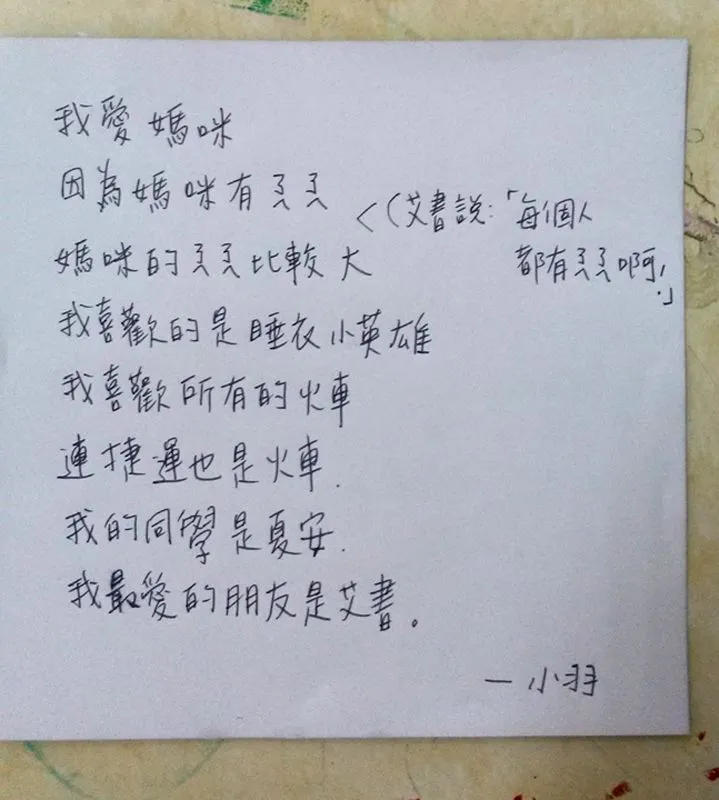 我愛媽咪
因為媽咪有ㄋㄋ
<(艾書說:「每個人
都有ㄋㄋ啊!」
媽咪的ㄋㄋ比較大
我喜歡的是睡衣小英雄
我喜歡所有的火車
連捷運也是火車.
我的同學是夏安.
我最愛的朋友是艾書。
— 小羽